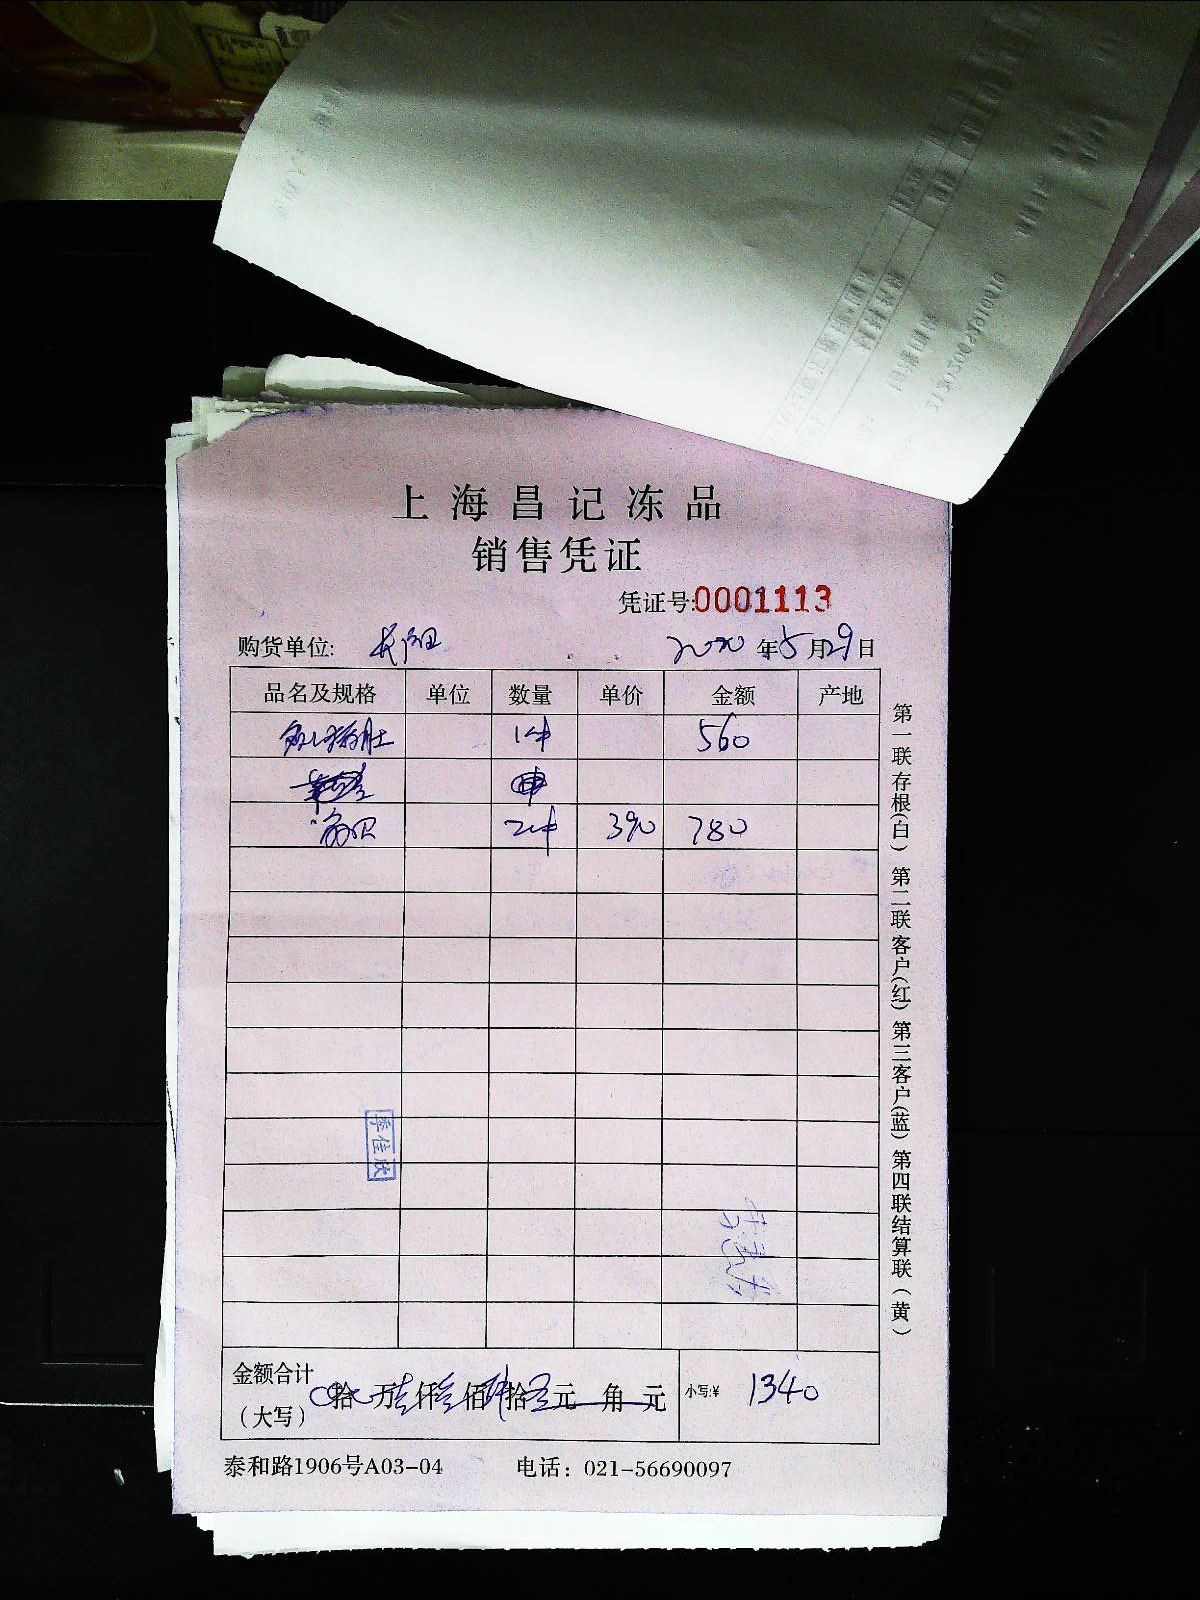 上海昌记冻品
销售凭证
凭证号:0001113
购货单位: 2020年5月29日
品名及规格 单位 数量 单价 金额 产地
1件 560
2件 390 780
季佳欣
金额合计(大写) 拾 万壹仟叁佰肆拾 元 角 元 小写:¥ 1340
泰和路1906号A03-04 电话：021-56690097
第一联存根(白) 第二联客户(红) 第三客户(蓝) 第四联结算联(黄)